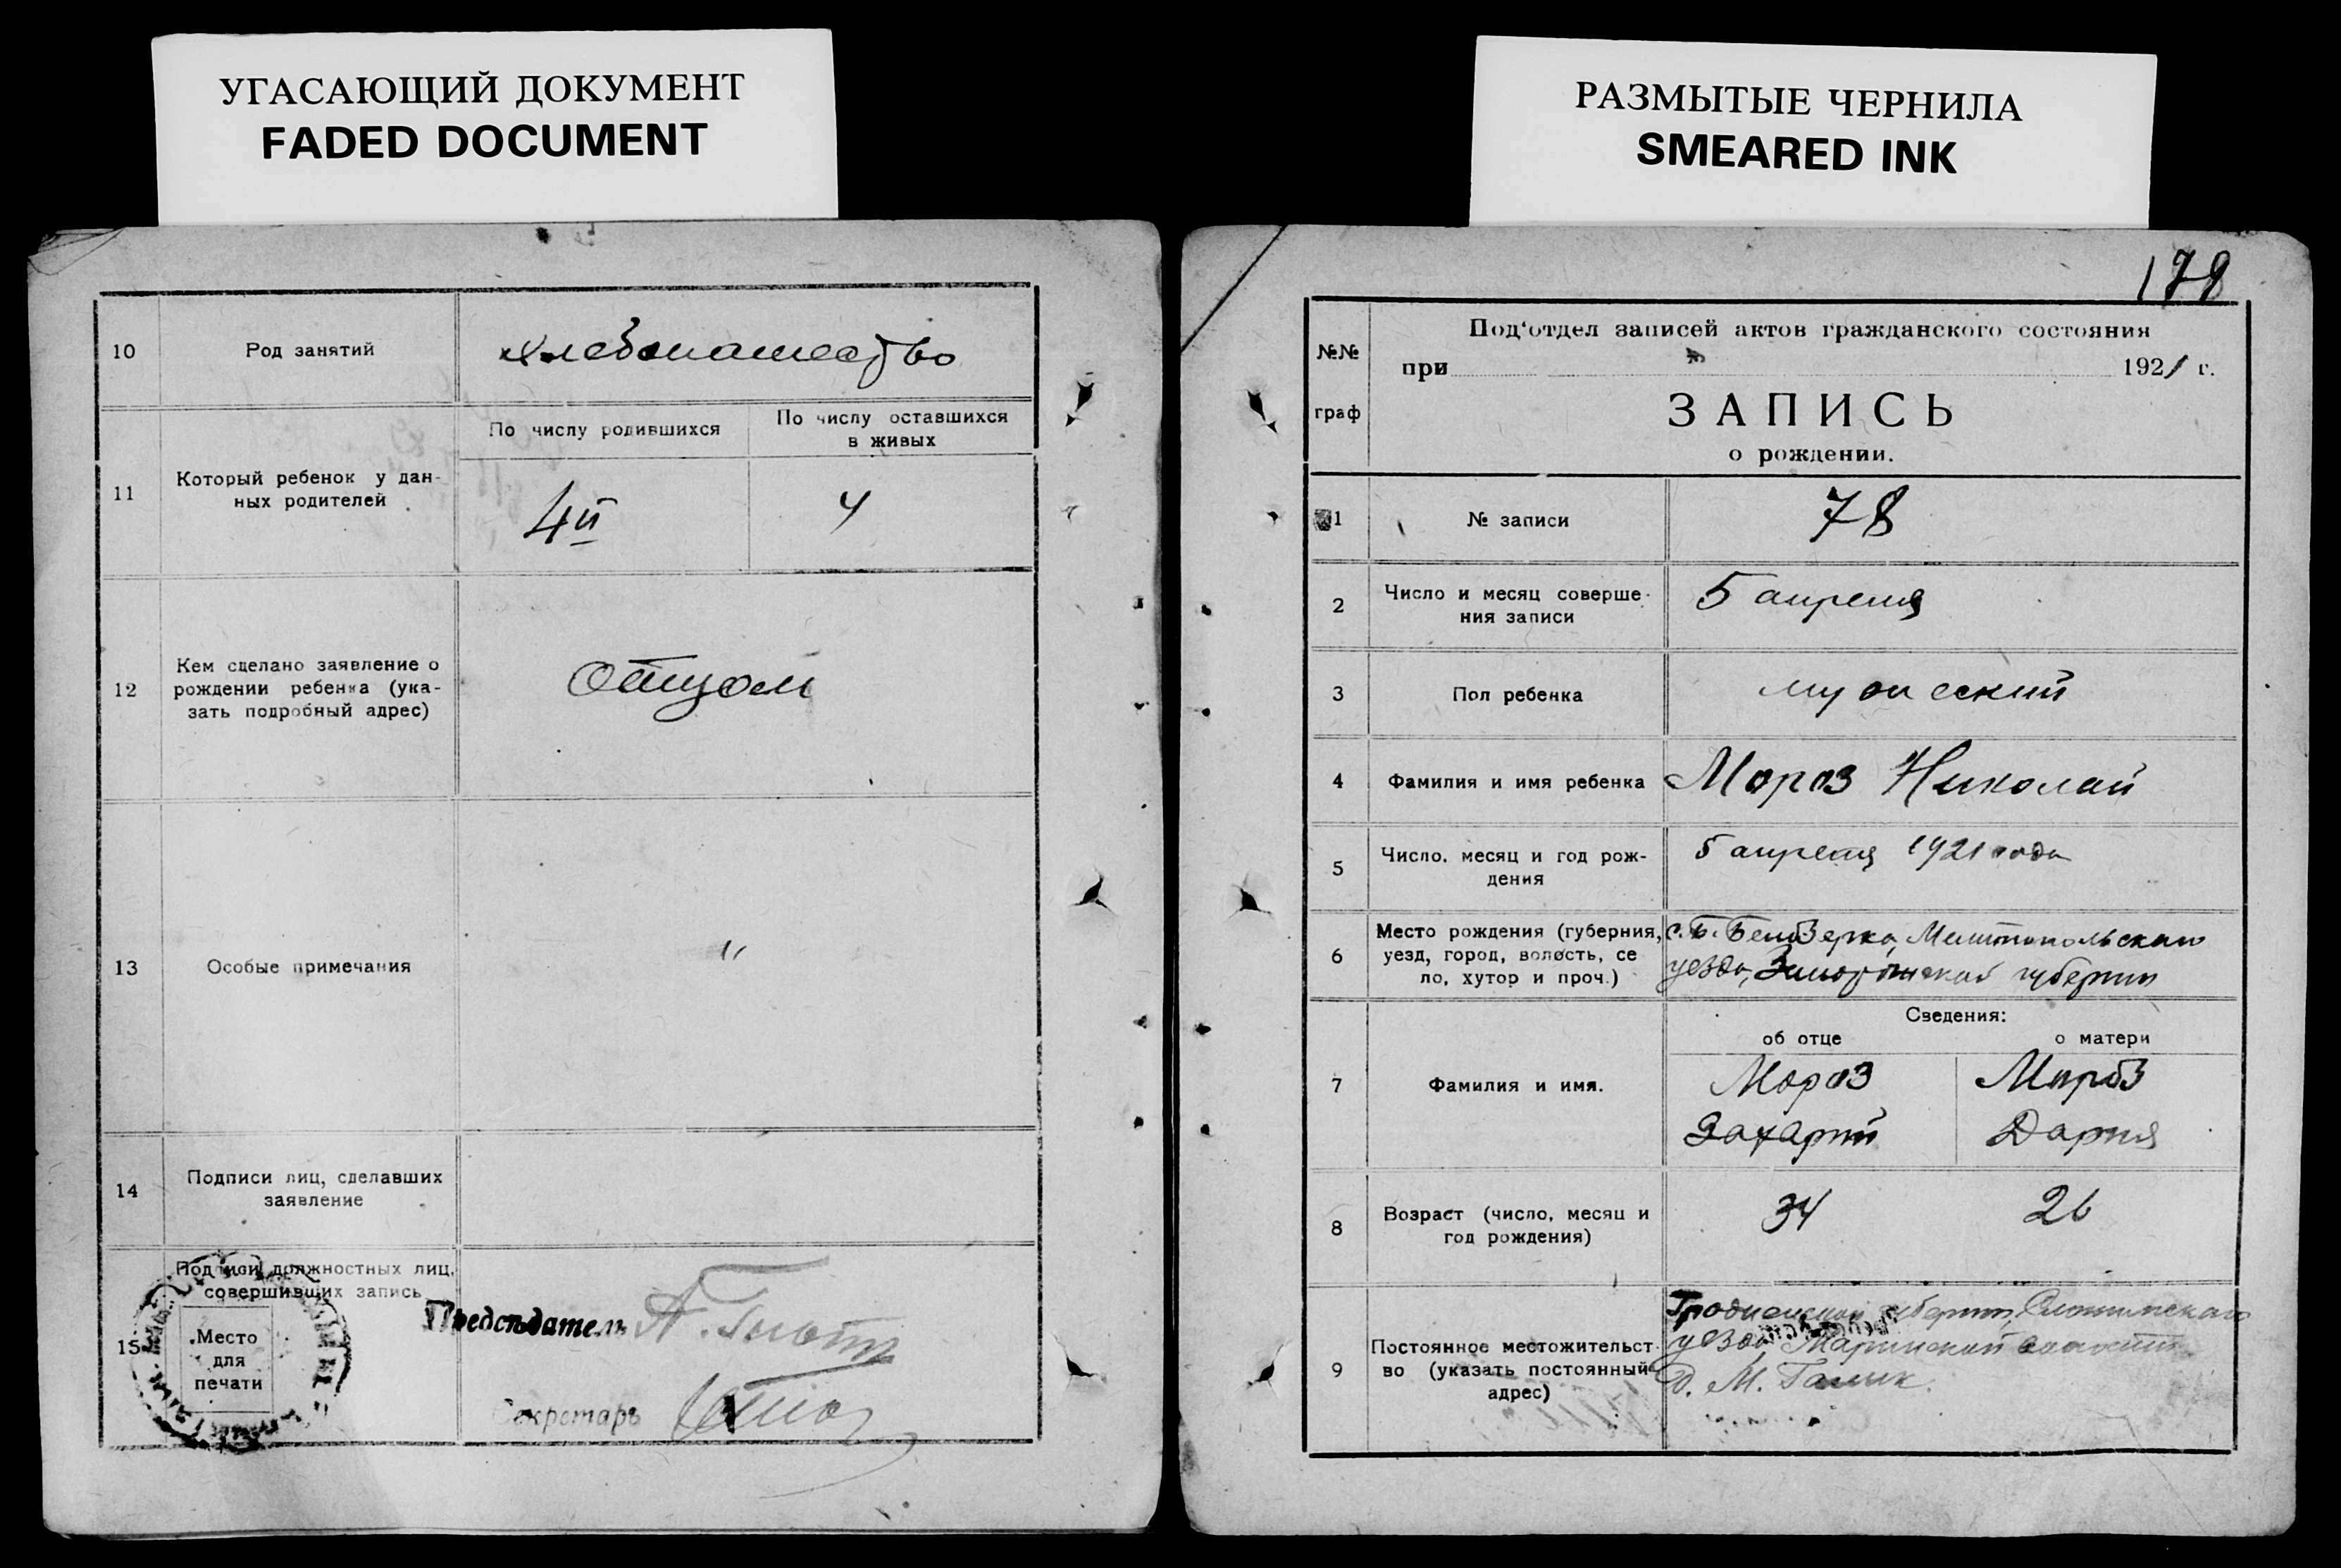 УГАСАЮЩИЙ ДОКУМЕНТ
FADED DOCUMENT
10
Род занятий
хлебопашество
11
Который ребенок у дан-
ных родителей
По числу родившихся
4й
По числу оставшихся
в живых
4
12
Кем сделано заявление о
рождении ребенка (ука-
зать подробный адрес)
Отцом
13
Особые примечания
"
14
Подписи лиц, сделавших
заявление
15
Подписи должностных лиц,
совершивших запись
Место
для
печати
Председатель
Секретарь
РАЗМЫТЫЕ ЧЕРНИЛА
SMEARED INK
178
№№
граф
Под'отдел записей актов гражданского состояния
при 1921 г.
ЗАПИСЬ
о рождении.
1
№ записи
78
2
Число и месяц соверше-
ния записи
5 апреля
3
Пол ребенка
мужеский
4
Фамилия и имя ребенка
Мороз Николай
5
Число, месяц и год рож-
дения
5 апреля 1921 года
6
Место рождения (губерния,
уезд, город, волость, се
ло, хутор и проч.)
с. Б. Белозерка, Мелитопольскаго
уезда, губернии
Сведения:
об отце
о матери
7
Фамилия и имя.
Мороз
Захарий
Мороз
Дария
8
Возраст (число, месяц и
год рождения)
34
26
9
Постоянное местожительст-
во (указать постоянный
адрес)
Гродненской губернии, Слонимскаго
уезда волости
д. М.